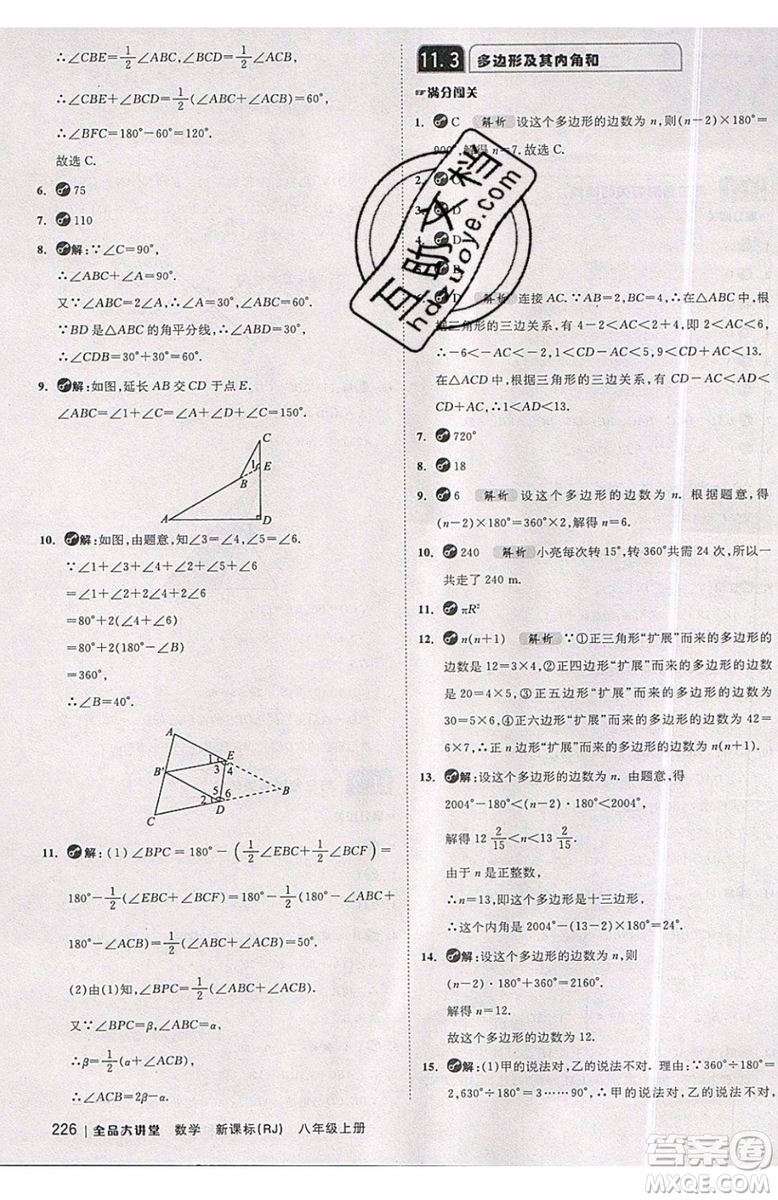 ∴∠CBE=1/2∠ABC,∠BCD=1/2∠ACB,
∴∠CBE+∠BCD=1/2(∠ABC+∠ACB)=60°,
∴∠BFC=180°-60°=120°.
故选 C.
6. 75
7. 110
8. 解:∵∠C=90°,
∴∠ABC+∠A=90°.
又∵∠ABC=2∠A,∴∠ABC=60°.
∵BD 是△ABC的角平分线,∴∠CBD=30°,
∴∠CDB=30°+30°=60°.
9. 解:如图,延长 AB 交 CD 于点 E.
∠ABC=∠1+∠C=∠A+∠D+∠C=150°.
C
1
E
B
A
D
10. 解:如图,由题意,知∠3=∠4,∠5=∠6.
∴∠1+∠2+∠3+∠4+∠5+∠6
=∠1+∠2+2∠4+2∠6
=80°+2(∠4+∠6)
=80°+2(180°-∠B)
=360°,
∴∠B=40°.
A
1
E
3
4
B′
B
5
6
2
D
C
11. 解:(1)∠BPC=180°-(1/2∠EBC+1/2∠BCF)=
180°-1/2(∠EBC+∠BCF)=180°-1/2(180°-∠ABC+
180°-∠ACB)=1/2(∠ABC+∠ACB)=50°.
(2)由(1)知,∠BPC=1/2(∠ABC+∠ACB).
又∵∠BPC=β,∠ABC=α,
∴β=1/2(α+∠ACB),
∴∠ACB=2β-α.
226 | 全品大讲堂 数学 新课标(RJ) 八年级上册
11.3 多边形及其内角和
☞满分闯关
1. C 解析 设这个多边形的边数为 n,则(n-2)×180°=
900°,解得 n=7.故选 C.
2. C
3. D
4. D
5. C
6. D 解析 连接 AC.∵AB=2,BC=4,∴在△ABC中,根
据三角形的三边关系,有 4-2<AC<4+2,即 2<AC<6,
∴-6<-AC<-2,1<7-AC<5,9<7+AC<13.
在△ACD中,根据三角形的三边关系,有 AD-AC<
CD<AD+AC,∴1<CD<13.
7. 720°
8. 18
9. 6 解析 设这个多边形的边数为 n. 根据题意,得
(n-2)×180°=360°×2,解得 n=6.
10. 240 解析 小亮每次转 15°,转360°共需 24 次,所以一
共走了 240 m.
11. πR²
12. n(n+1) 解析 ∵①正三角形“扩展”而来的多边形的
边数是 12=3×4,②正四边形“扩展”而来的多边形的边数是
20=4×5,③正五边形“扩展”而来的多边形的边数为
30=5×6,④正六边形“扩展”而来的多边形的边数为 42=
6×7,∴正 n 边形“扩展”而来的多边形的边数为 n(n+1).
13. 解:设这个多边形的边数为 n. 由题意,得
2004°-180°<(n-2)×180°<2004°,
解得 12 2/15<n<13 2/15.
由于 n 是正整数,
∴n=13,即这个多边形是十三边形,
∴这个内角是 2004°-11×180°=24°.
14. 解:设这个多边形的边数为 n,则
(n-2)×180°+360°=2160°.
解得 n=12.
故这个多边形的边数为 12.
15. 解:(1)甲的说法对,乙的说法不对. 理由:∵360°÷180°=
2,630°÷180°=3……90°,∴甲的说法对,乙的说法不对,
互助文档
hdzuoye.com
答案圈
MXQE.COM